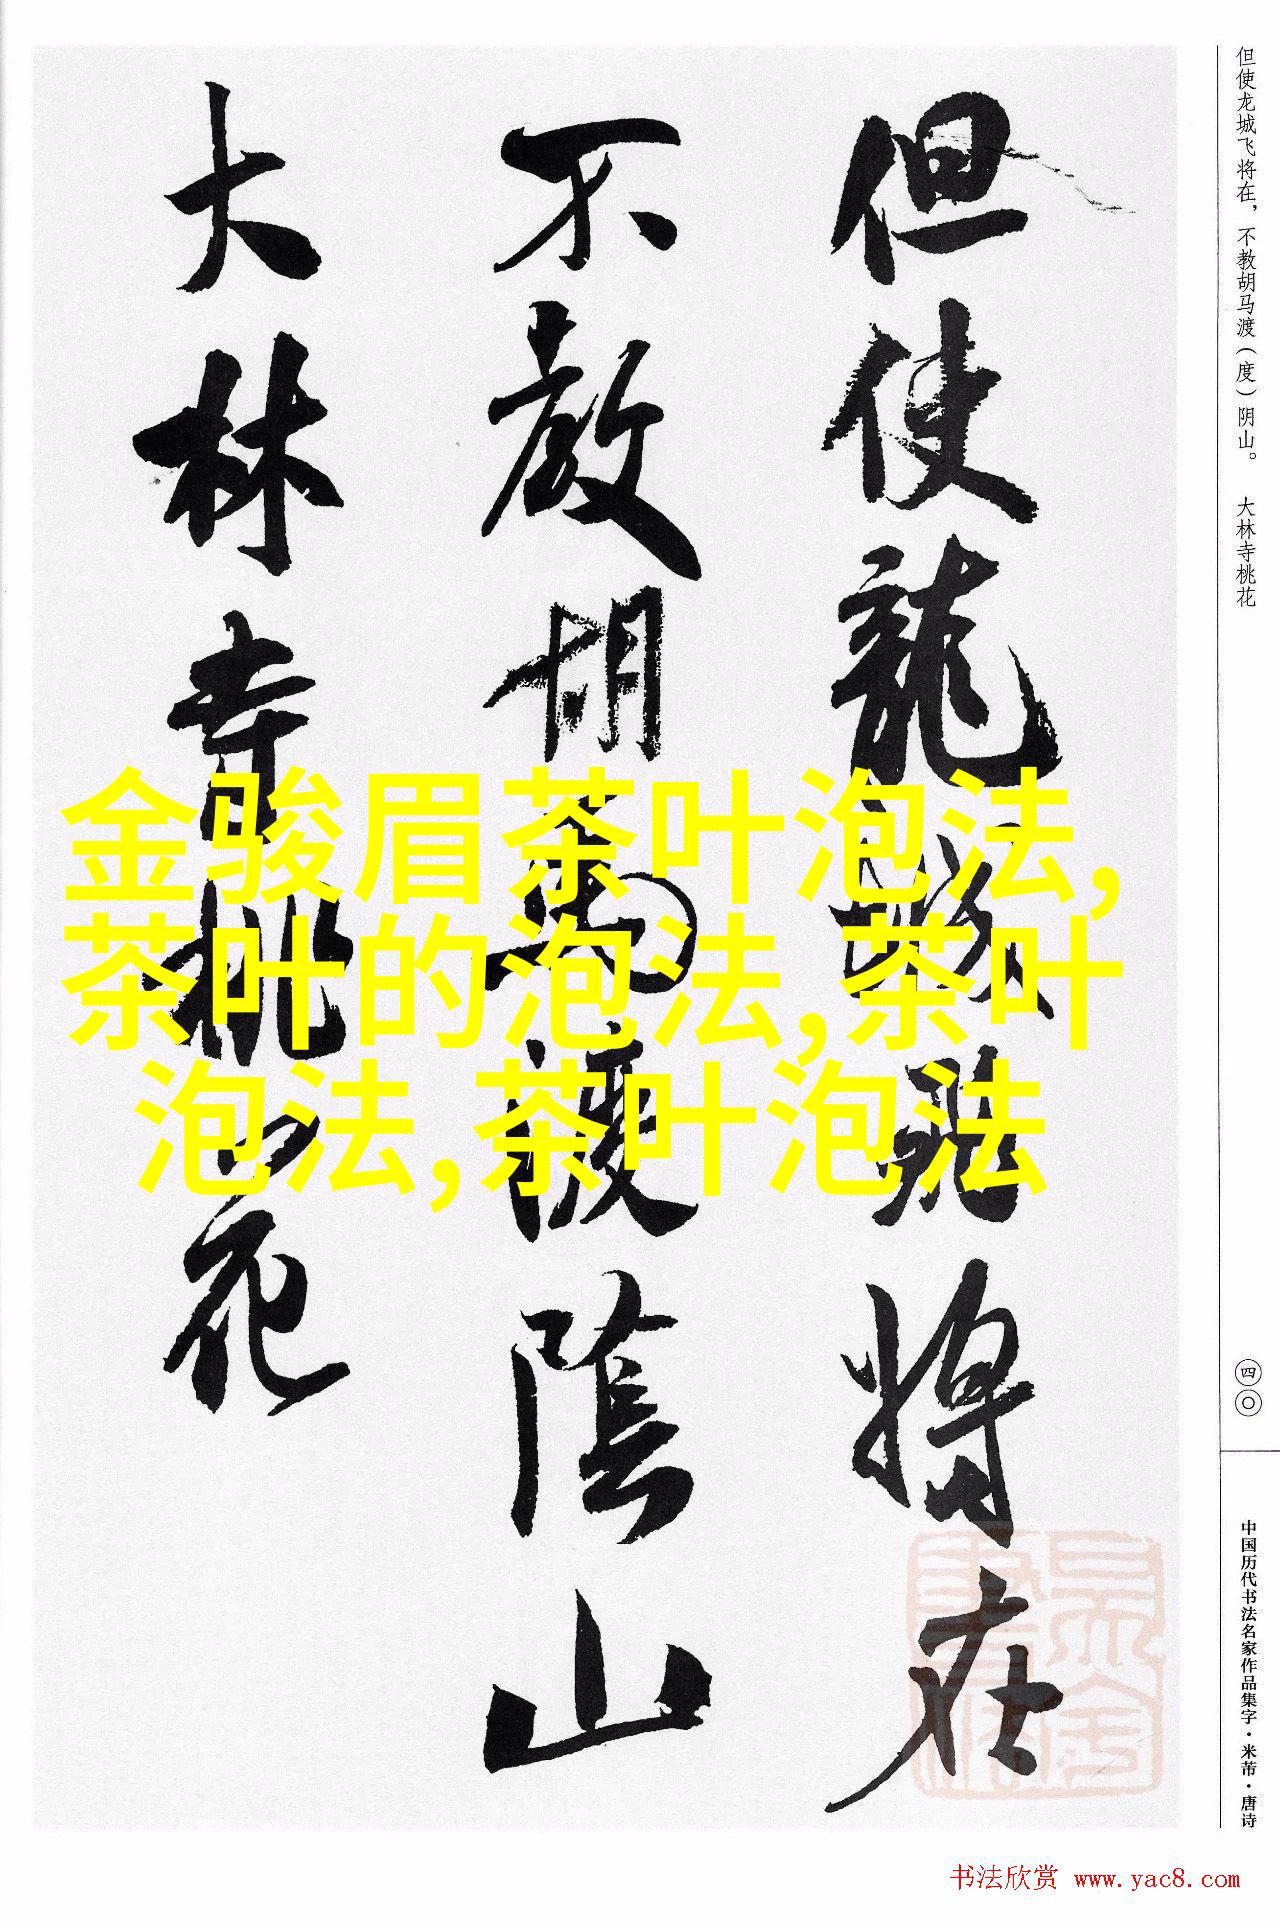 但使龍城飛將在
不教胡馬渡陰山
大林寺桃花
金骏眉茶叶泡法,
茶叶的泡法,茶叶
泡法,茶叶泡法
但使龙城飞将在，不教胡马渡（度）阴山。 大林寺桃花
四〇
中国历代书法名家作品集字·米芾·唐诗
书法欣赏 www.yac8.com